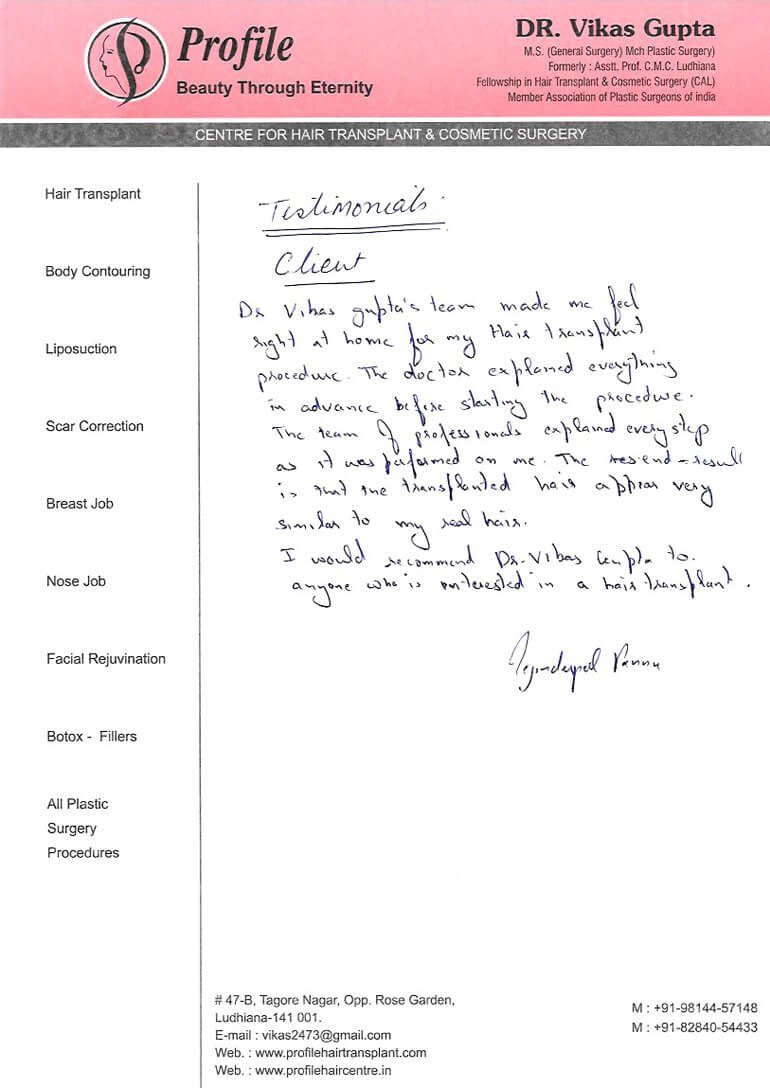 Profile
Beauty Through Eternity
DR. Vikas Gupta
M.S. (General Surgery) Mch Plastic Surgery)
Formerly : Asstt. Prof. C.M.C. Ludhiana
Fellowship in Hair Transplant & Cosmetic Surgery (CAL)
Member Association of Plastic Surgeons of india
CENTRE FOR HAIR TRANSPLANT & COSMETIC SURGERY
Hair Transplant
Body Contouring
Liposuction
Scar Correction
Breast Job
Nose Job
Facial Rejuvination
Botox - Fillers
All Plastic
Surgery
Procedures
Testimonials.
Client
Dr Vikas gupta's team made me feel
right at home for my Hair transplant
procedure. The doctor explained everything
in advance before starting the procedure.
The team of professionals explained every step
as it was performed on me. The end-result
is that the transplanted hair appear very
similar to my real hair.
I would recommend Dr. Vikas Gupta to.
anyone who is interested in a hair transplant.
# 47-B, Tagore Nagar, Opp. Rose Garden,
Ludhiana-141 001.
E-mail : vikas2473@gmail.com
Web. : www.profilehairtransplant.com
Web. : www.profilehaircentre.in
M : +91-98144-57148
M : +91-82840-54433